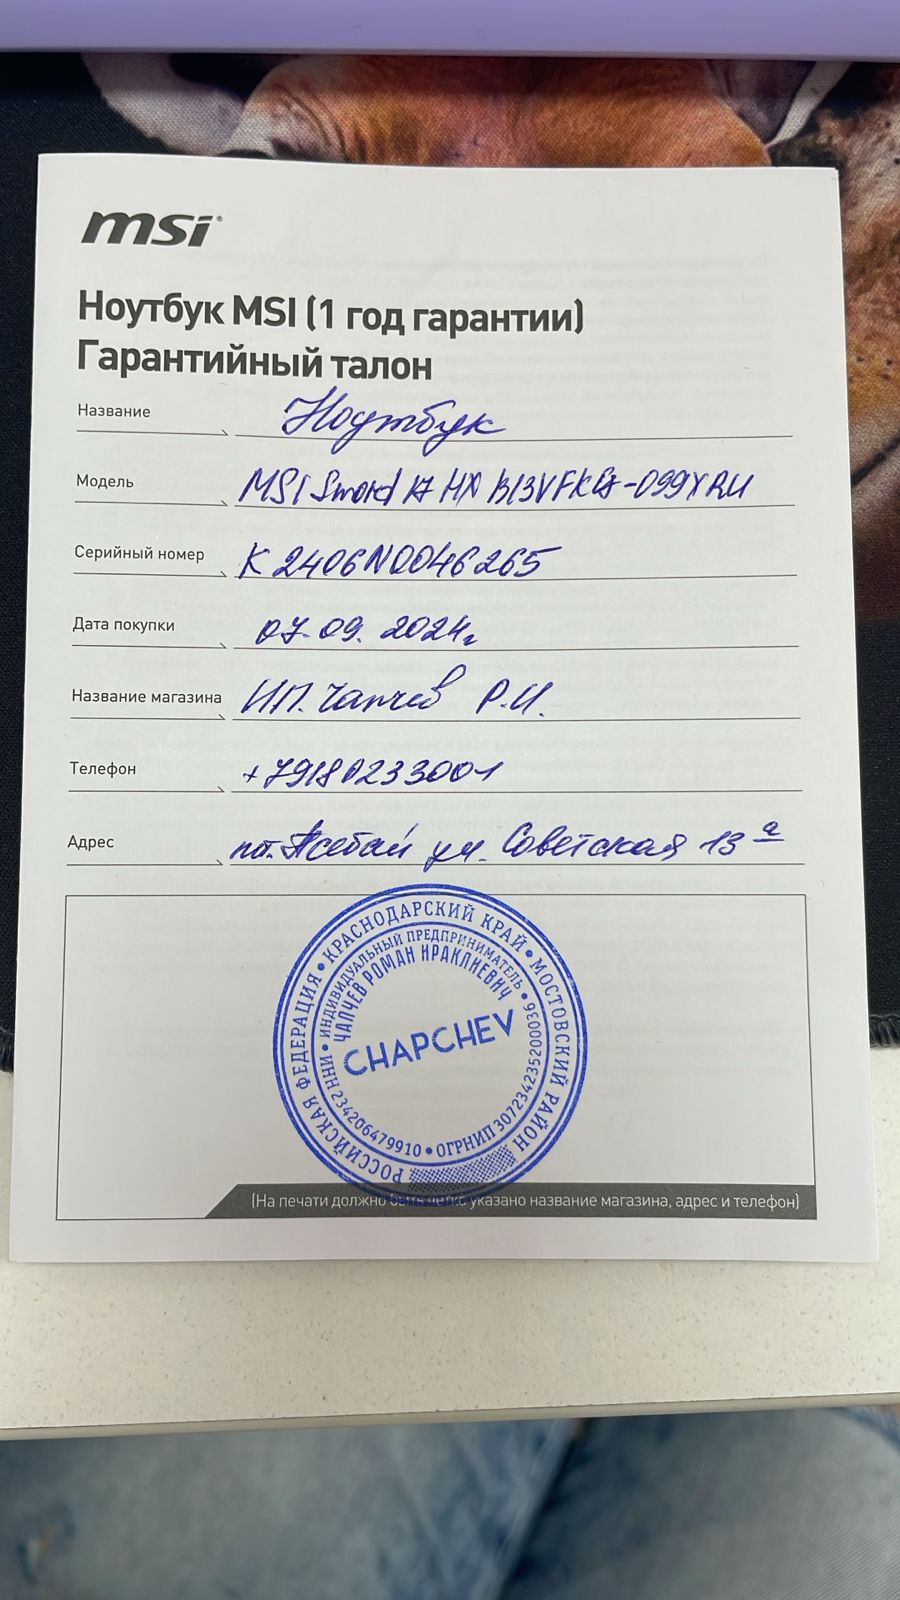 msi
Ноутбук MSI (1 год гарантии)
Гарантийный талон
Название Ноутбук
Модель MSI Sword 17 HX B13VFKG-099XRU
Серийный номер K2406N0046265
Дата покупки 07.09.2024г
Название магазина ИП. Чапчев Р.И.
Телефон +79180233001
Адрес пгт. Псебай ул. Советская 13 а
РОССИЙСКАЯ ФЕДЕРАЦИЯ • КРАСНОДАРСКИЙ КРАЙ • МОСТОВСКИЙ РАЙОН
ИНДИВИДУАЛЬНЫЙ ПРЕДПРИНИМАТЕЛЬ •
ЧАПЧЕВ РОМАН ИРАКЛИЕВИЧ
CHAPCHEV
ИНН 234206479910 • ОГРНИП 307234235200036
(На печати должно быть четко указано название магазина, адрес и телефон)